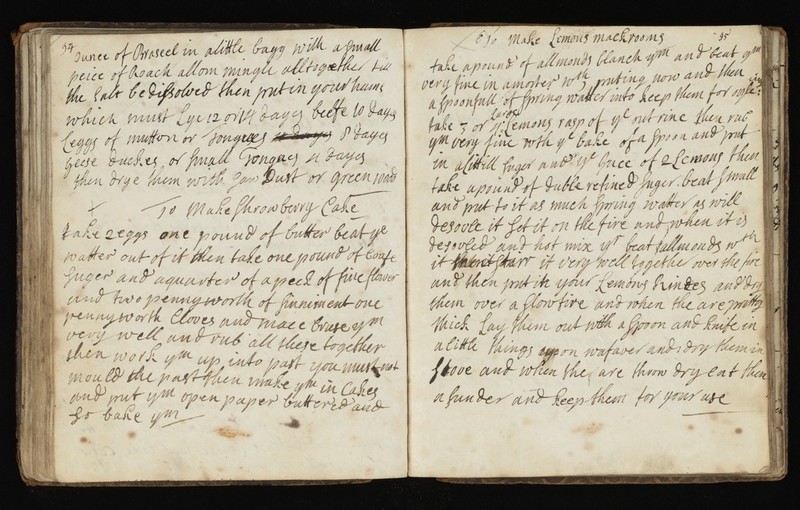 34
Ounce of Braseel in alittle bagg with a small
peice of Roach allom mingle alltogether till
the salt be dissolved then put in your hams
which must Lye 12 or 14 dayes beefe 10 dayes
Leggs of mutton or Tongues 8 dayes
Geese duckes, or small Tongues 4 dayes
then drye them with saw Dust or green wood
To Make Shrowberry Cake
take 2 eggs one pound of butter beat ye
watter out of it then take one pound of Loafe
suger and a quarter of a peck of fine flower
and two pennyworth of sinniment one
pennyworth Cloves and mace bruse ym
very well and rub all these together
then work ym up into past you must not
mould the past then make ym in Cakes
and put ym open paper buttered and
so bake ym
To Make Lemons mackrooms 35
take a pound of allmonds blanch ym and beat ym
very fine in a morter wth putting now and then
a spoonfull of spring watter into keep them for
take 7 or Large Lemons rasp of ye out rine then rub
ym very fine with ye bake of a spoon and put
in alitill suger and ye juce of 2 Lemons then
take a pound of duble refined suger beat small
and put to it as much spring watter as will
desoove it set it on the fire and when it is
desovled and hot mix yr beat allmonds wth
it starr it very well together over the fire
and then put in your Lemons Rindes and dry
them over a slow fire and when the are pretty
thick Lay them out with a spoon and knife in
a little things upon wafaver and dry them in
stove and when the are throw dry cut them
a sunder and keep them for your use